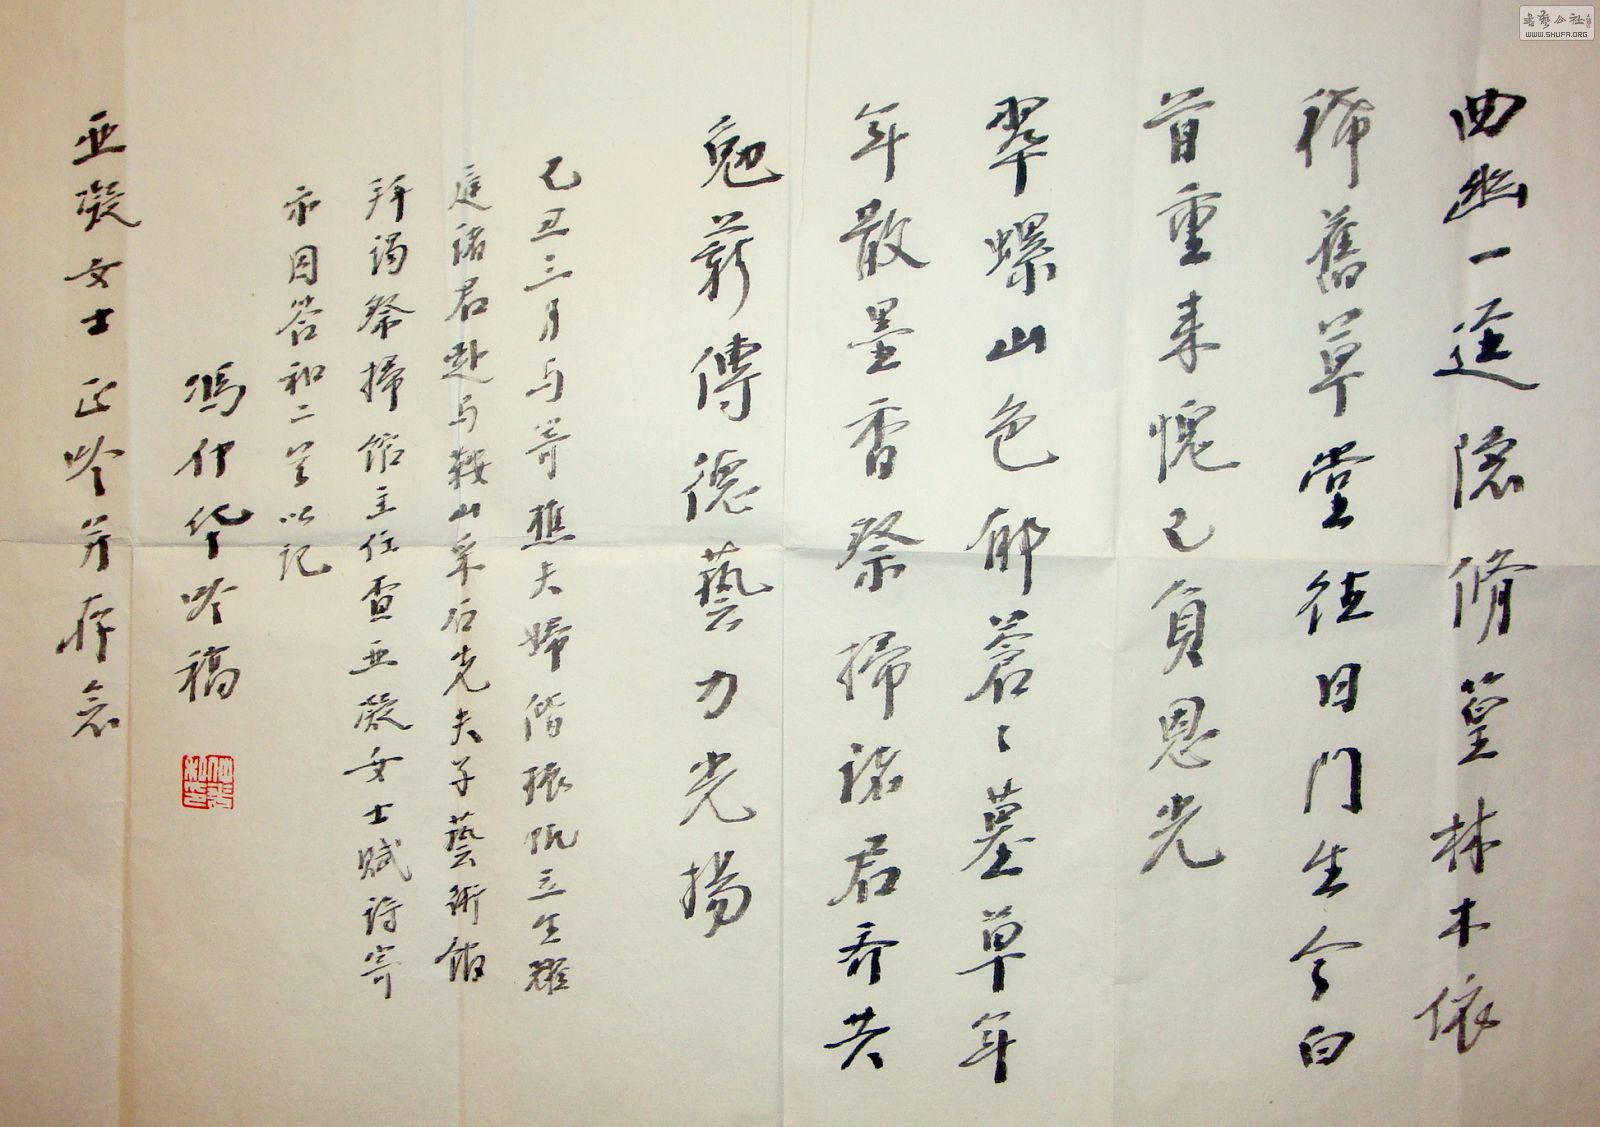 曲幽一逕隱脩篁林木依
稀舊草堂往日門生今白
首重来愧已負恩光
翠螺山色郁蒼〻墓草年
年散墨香祭掃諸君齐共
勉薪傳德藝力光揚
己丑三月与芳樵夫婦偕振立生耀
庭諸君赴马鞍山采石先夫子藝術館
拜謁祭掃館主任查亚凝女士賦詩寄
示因答和二首以记
馮仲华吟稿
亚凝女士正吟并存念
書藝公社
WWW.SHUFA.ORG